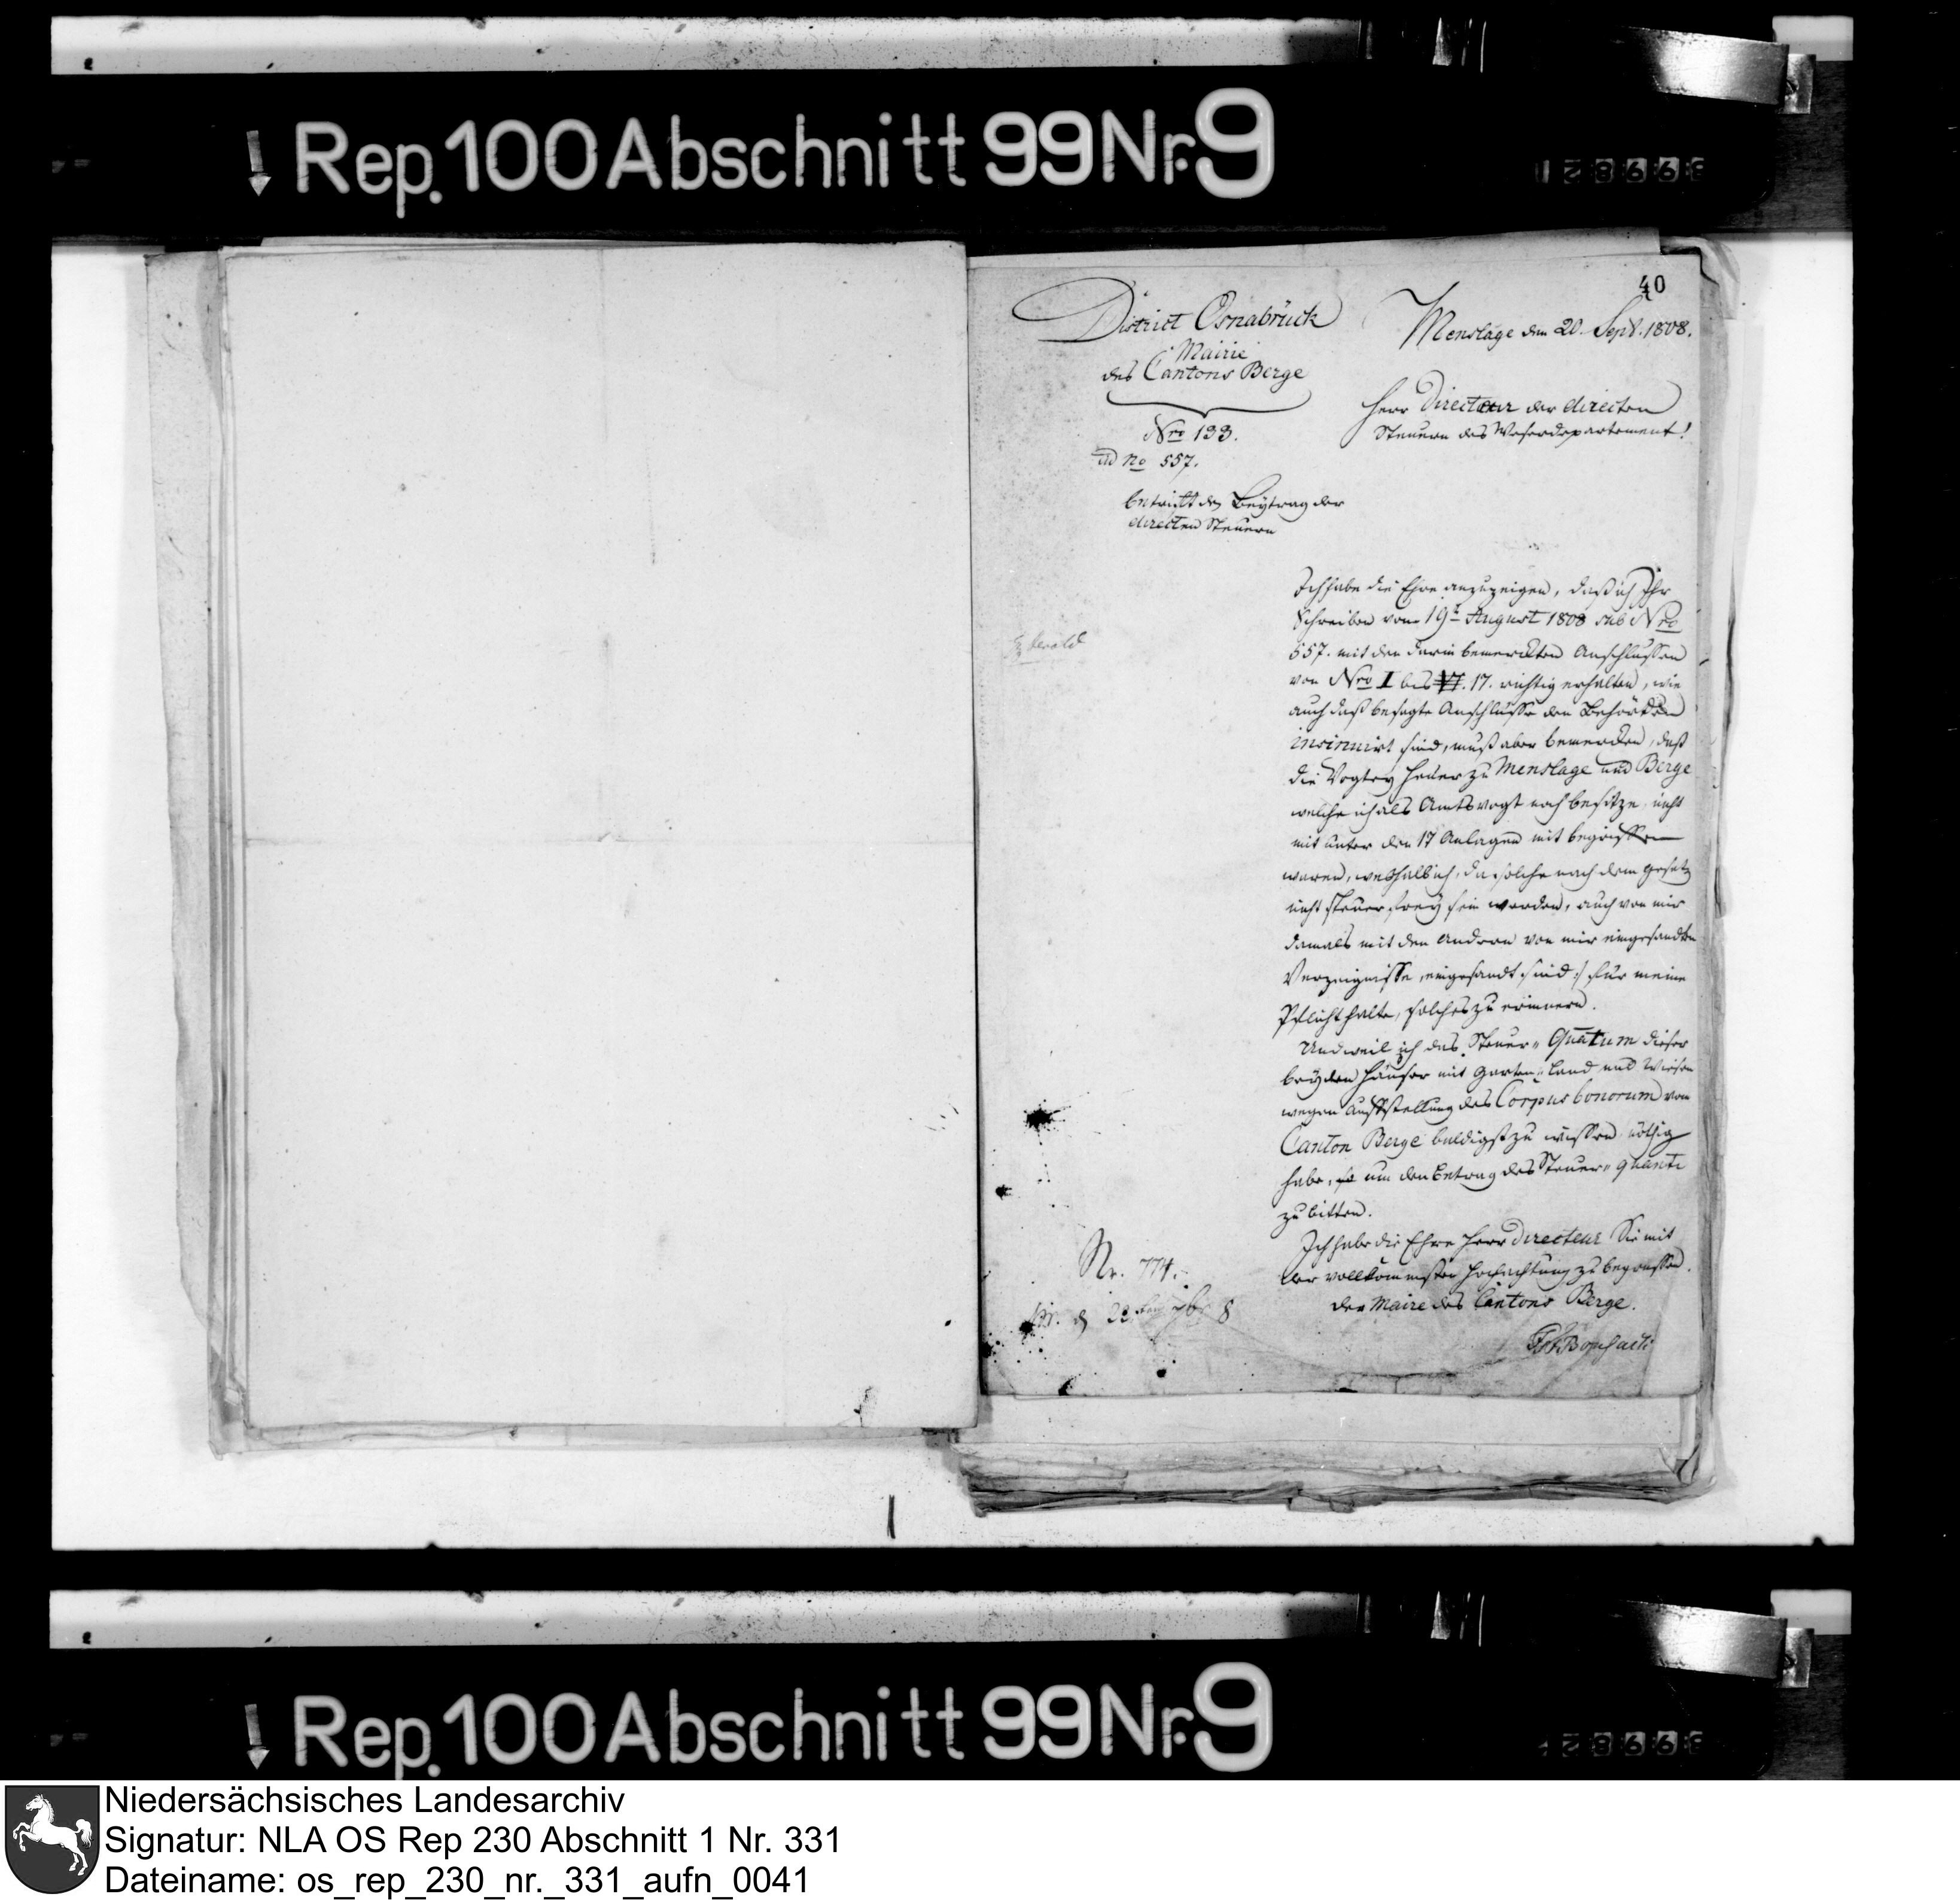 Rep. 100 Abschnitt 99 Nr. 9
40
District Osnabrück
Mairie
des Cantons Berge
Nro 193.
ad no 557.
betrifft den Beytrag der
directen Steuern
Menslage den 20. Sept. 1808.
Herr Directeur der directen
Steuern des Weserdepartement!
Ich habe die Ehre anzuzeigen, daß ich Ihr
Schreiben vom 19t August 1808 sub Nro
557. mit den darin bemerckten Anschlüssen
von Nro I bis 17. richtig erhalten, wie
auch daß besagte Anschlüsse den Behörden
insinuirt sind, muß aber bemercken, daß
die Vogtey Häuser zu Menslage und Berge
welche ich als Amtsvogt noch besitze nicht
mit unter den 17 Anlagen mit begriffen
waren, weshalb ich, da solche nach dem Gesetz
nicht steuer frey sein werden, auch von mir
damals mit den Andren von mir eingesandten
Verzeignisse eingesandt sind :/ für meine
Pflicht halte, solches zu erinnern.
Und weil ich das Steuer„ Quatum dieser
beyden Häuser mit Garten„ Land und Wiesen
wegen Auffstellung des Corpus bonorum vom
Canton Berge baldigst zu wissen nöthig
habe, um den Betrag des Steuer„ quanti
zu bitten.
Ich habe die Ehre Herr Directeur Sie mit
der vollkommensten Hochachtung zu begrüssen.
Der Maire des Cantons Berge.
Nr. 774.
Rep. 100 Abschnitt 99 Nr. 9
Niedersächsisches Landesarchiv
Signatur: NLA OS Rep 230 Abschnitt 1 Nr. 331
Dateiname: os_rep_230_nr._331_aufn_0041